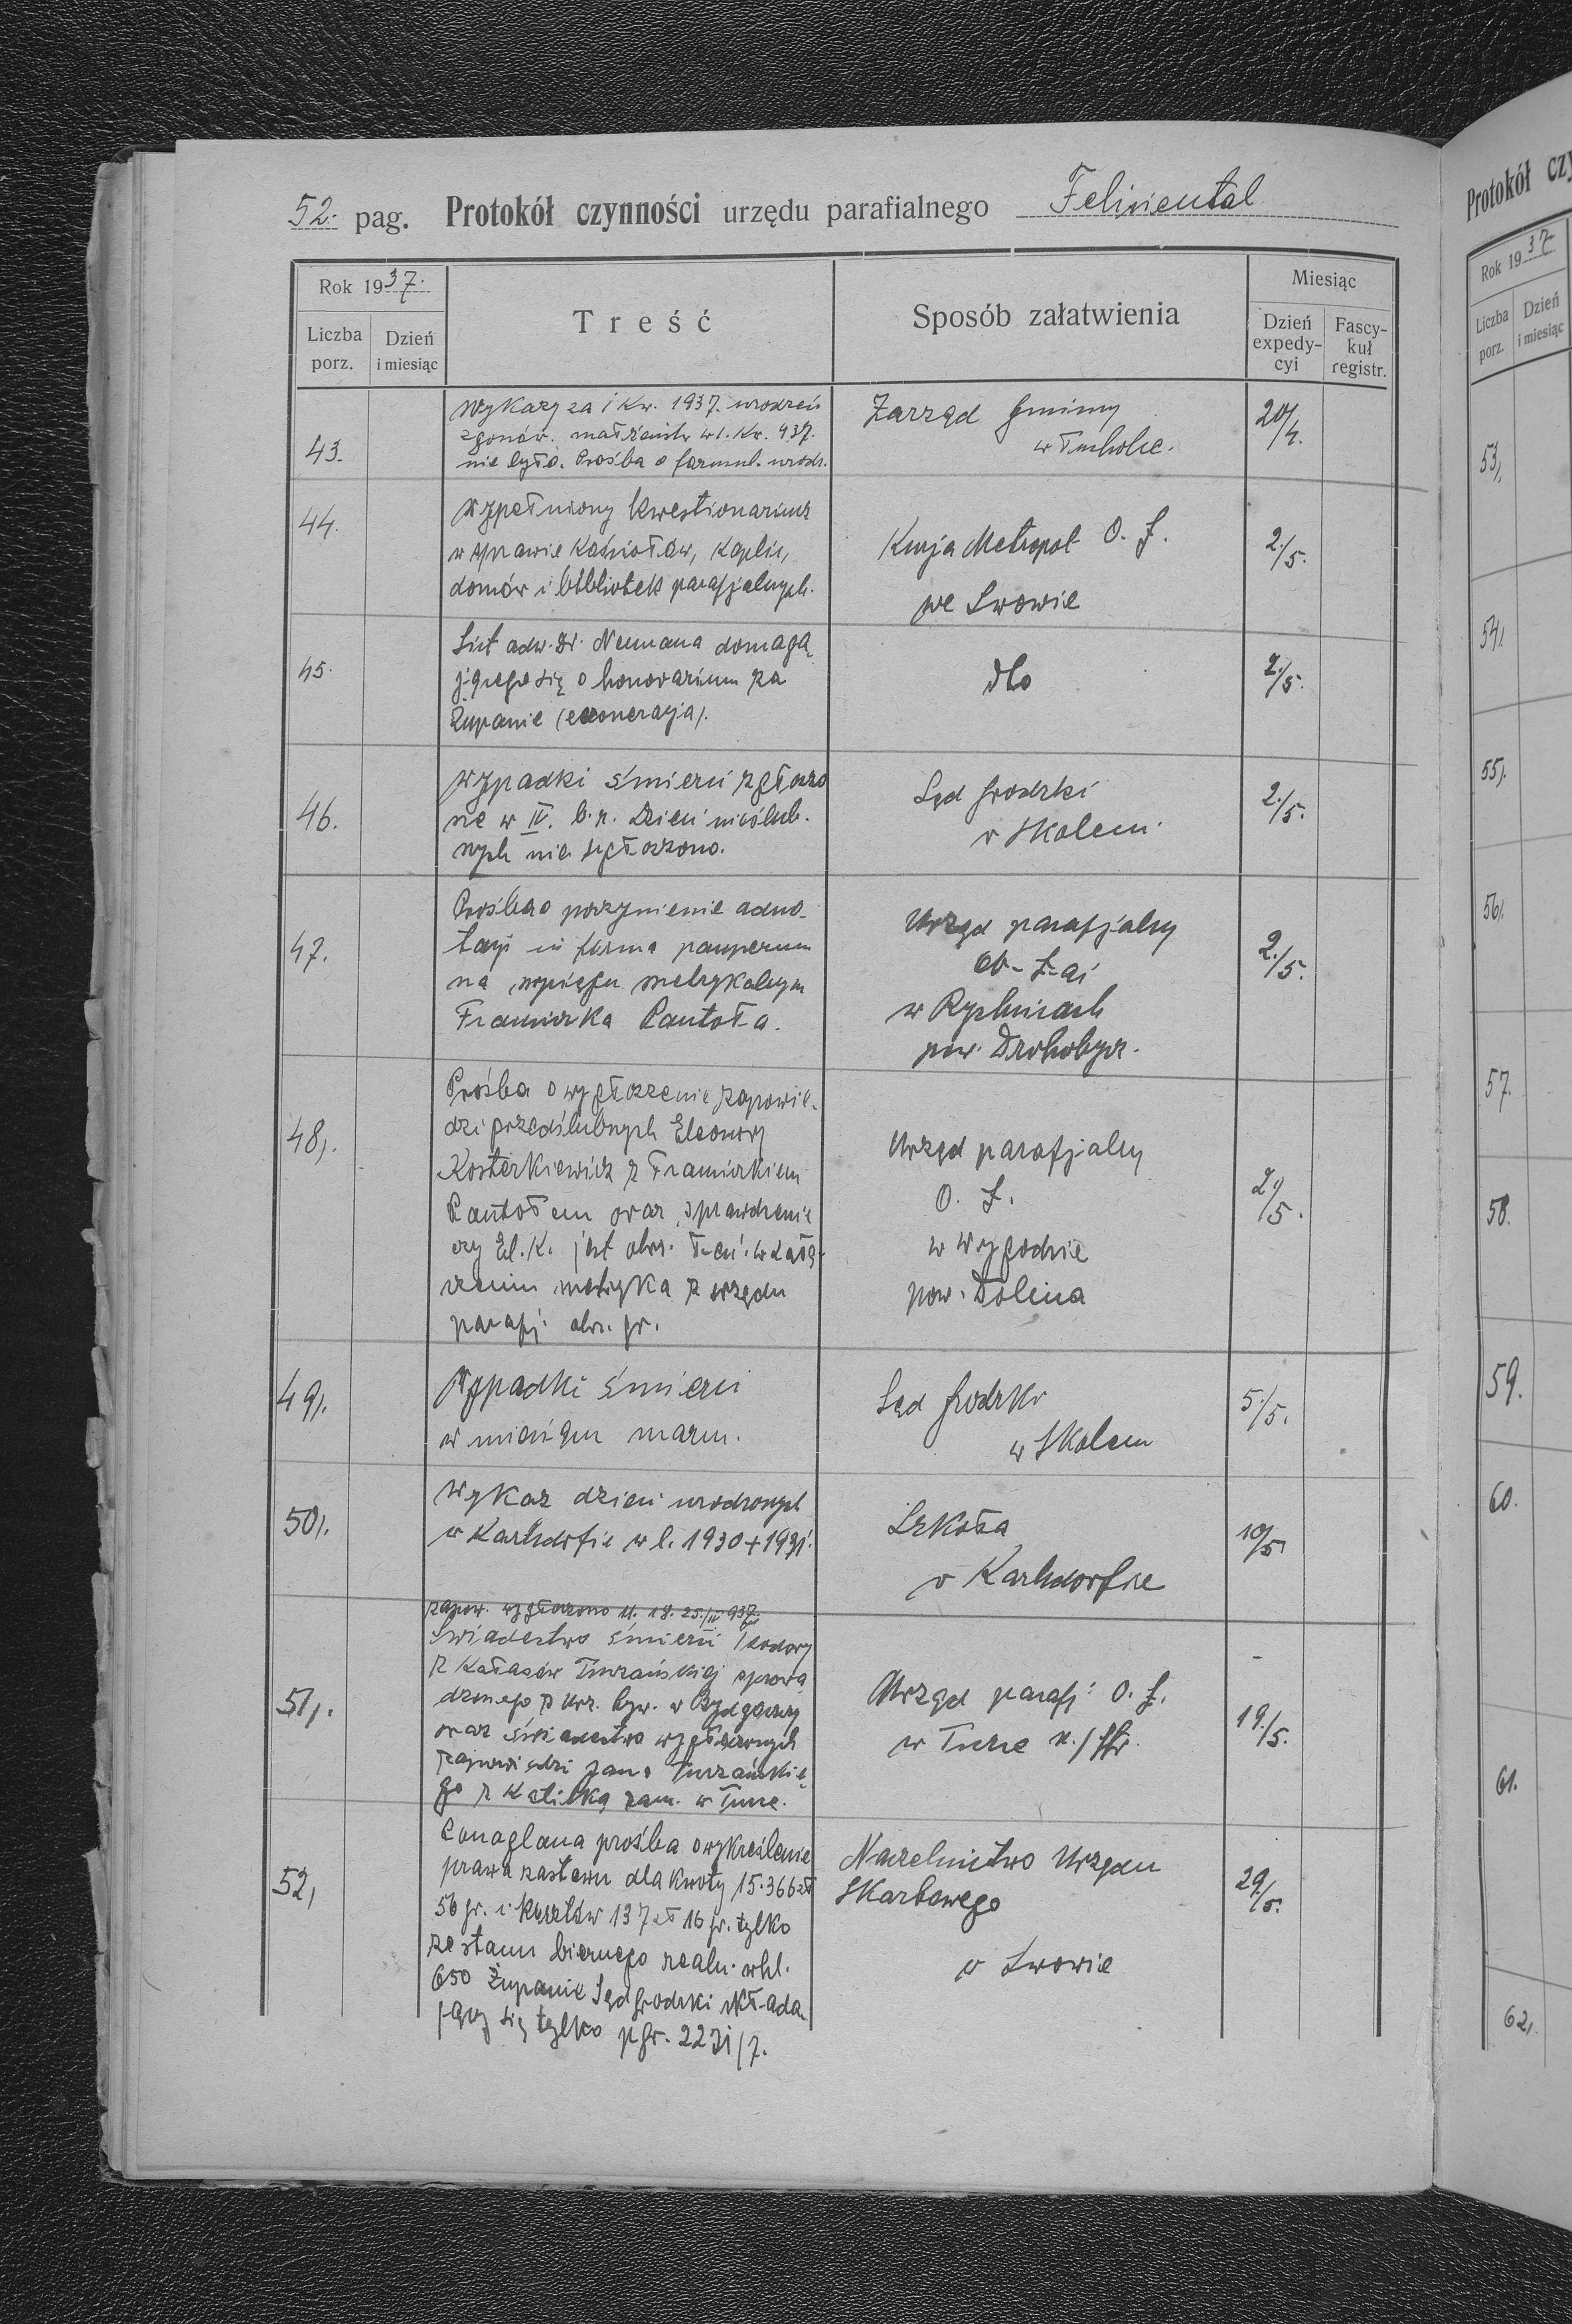 52. pag. Protokół czynności urzędu parafialnego Feliziental
Rok 1937.
Liczba porz.
Dzień i miesiąc
Treść
Sposób załatwienia
Miesiąc
Dzień expedy-cyi
Fascy-kuł registr.
43.
Wykazy za I kw. 1937. urodzeń
zgonów. małżeństw w I. kw. 937.
nie było. Prośba o formul. urodz.
Zarząd Gminny
w Tucholce.
20/4.
44.
Wypełniony kwestionariusz
w sprawie kościołów, kaplic,
domów i bibliotek parafjalnych.
Kurja Metropol. O. Ł.
we Lwowie
2./5.
45.
List adw. Dr. Neumana domaga
jącego się o honorarium za
Żupanie (exoneracja).
dto
2./5.
46.
Wypadki śmierci zgłoszo
ne w IV. b.r. Dzieci nieślub.
nych nie zgłoszono.
Sąd Grodzki
w Skolem.
2./5.
47.
Prośba o poczynienie adno-
tacji in forma pauperum
na wyciągu metrykalnym
Franciszka Pantoła.
Urząd parafjalny
ob-ł-ac
w Rychcicach
pow. Drohobycz.
2./5.
48,.
Prośba o wygłoszenie zapowie-
dzi przedślubnych Eleonory
Kosterkiewicz z Franciszkiem
Pantołem oraz sprawdzenie
czy El. K. jest obrz. łac. w załą-
czeniu metryka z urzędu
parafj. obrz. gr.
Urząd parafjalny
O. Ł.
w Wygodzie
pow. Dolina
2/5.
49,.
Wypadki śmierci
w miesiącu marcu.
Sąd Grodzki
w Skolem
5./5.
50,.
Wykaz dzieci urodzonych
w Karlsdorfie w l. 1930 + 1931.
Szkoła
w Karlsdorfie
10/5
zapow. wygłoszono 11. 18. 25./IV 937.
51,.
Świadectwo śmierci Izodory
z Kałasów Turzańskiej sprowa
dzonego z urz. cyw. w Bydgoszczy
oraz świadectwo wygłoszonych
zapowiedzi Jana Turzańskie
go z Katilką zam. w Turce.
Urząd parafj. O. Ł.
w Turce n./Str.
19./5.
52,
Ponaglana prośba o wykreślenie
prawa zastawu dla kwoty 15.366 zł
56 gr. i kosztów 137 zł 16 gr. tylko
ze stanu biernego realn. whl.
650 Żupanie Sąd Grodzki składa
jący się tylko pgr. 2231/7.
Naczelnictwo Urzędu
Skarbowego
w Lwowie
29/5.
Protokół czy
Rok 1937
Liczba porz.
Dzień i miesiąc
53,.
54,.
55,.
56,.
57.
58.
59.
60.
61.
62,.